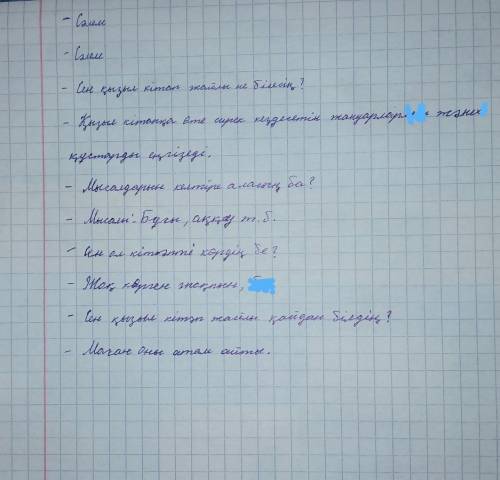 - Сәлем
- Сәлем
- Сен қызыл кітап жайлы не білесің?
- Қызыл кітапқа өте сирек кездесетін жануарлар және
құстарды еңгізеді.
- Мысалдарын келтіре аласың ба?
- Мысалы: Бұғы, аққу т.б.
- Сен ол кітапты көрдің бе?
- Жоқ көрген жоқпын,
- Сен қызыл кітап жайлы қайдан білдің?
- Маған оны атам айтты.